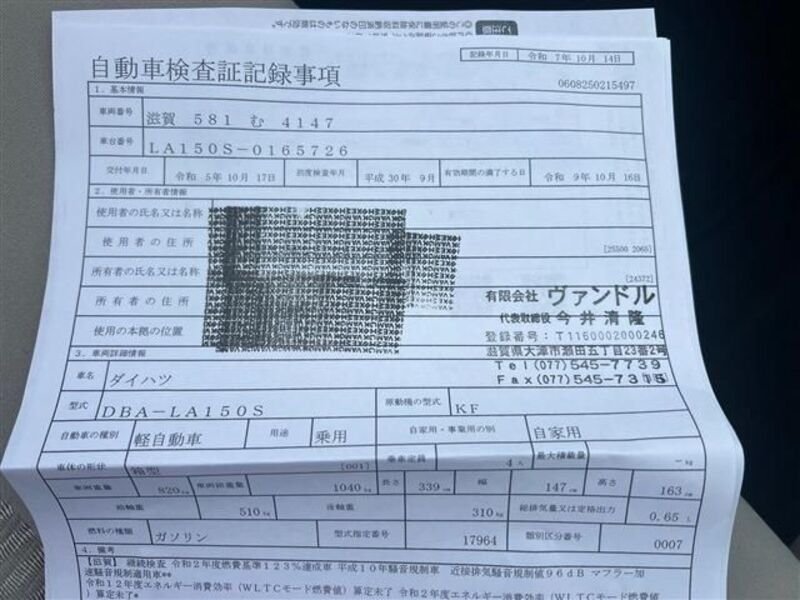 記録年月日 令和 7年10月 14日
自動車検査証記録事項
0608250215497
1. 基本情報
車両番号 滋賀 581 む 4147
車台番号 LA150S-0165726
交付年月日 令和 5年10月 17日 初度検査年月 平成30年 9月 有効期間の満了する日 令和 9年10月 16日
2. 使用者・所有者情報
使用者の氏名又は名称
使用者の住所
[25500 2065]
所有者の氏名又は名称
[24372]
所有者の住所
使用の本拠の位置
有限会社 ヴァンドル
代表取締役 今井清隆
登録番号：T1160002000246
滋賀県大津市瀬田五丁目23番2号
Tel(077)545-7739
Fax(077)545-7315
3. 車両詳細情報
車名 ダイハツ
型式 DBA-LA150S 原動機の型式 KF
自動車の種別 軽自動車 用途 乗用 自家用・事業用の別 自家用
車体の形状 箱型 [001] 乗車定員 4人 最大積載量 -kg
車両重量 820kg 車両総重量 1040kg 長さ 339cm 幅 147cm 高さ 163cm
前軸重 510kg 後軸重 310kg 総排気量又は定格出力 0.65L
燃料の種類 ガソリン 型式指定番号 17964 類別区分番号 0007
4. 備考
【滋賀】 継続検査 令和2年度燃費基準123%達成車 平成10年騒音規制車 近接排気騒音規制値96dB マフラー加
速騒音規制適用車**
令和12年度エネルギー消費効率（WLTCモード燃費値）算定未了 令和2年度エネルギー消費効率（WLTCモード燃費値
）算定未了*